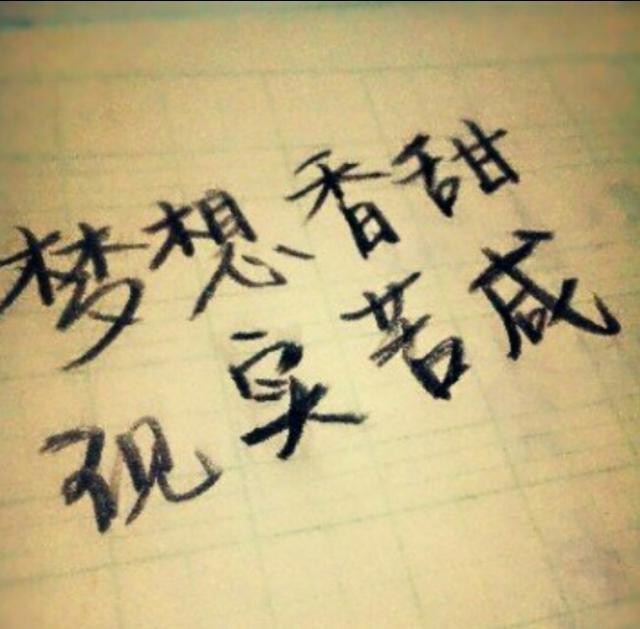 梦想香甜
现实苦咸